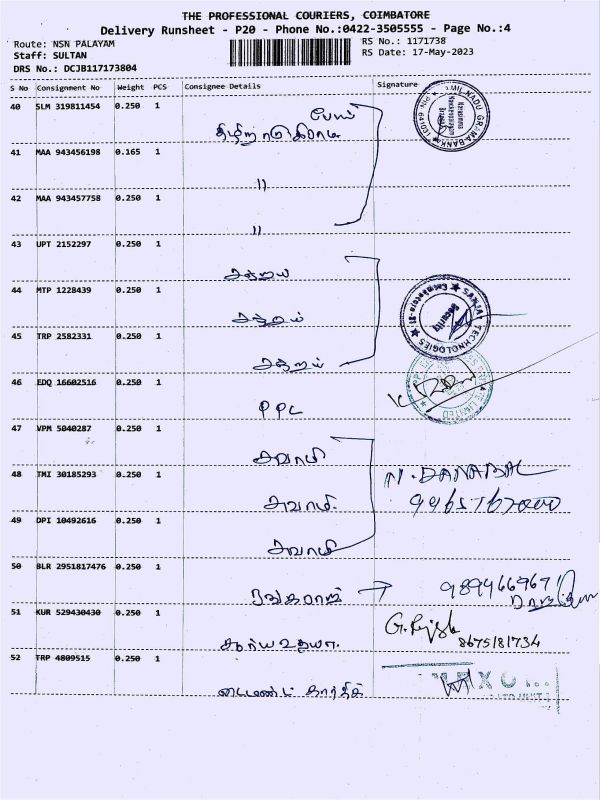 THE PROFESSIONAL COURIERS, COIMBATORE
Delivery Runsheet - P20 - Phone No.:0422-3505555 - Page No.:4
Route: NSN PALAYAM
RS No.: 1171738
Staff: SULTAN
RS Date: 17-May-2023
DRS No.: DCJB117173804
S No Consignment No Weight PCS Consignee Details Signature
40 SLM 319811454 0.250 1
TAMIL NADU GRAMA BANK
41 MAA 943456198 0.165 1
"
42 MAA 943457758 0.250 1
"
43 UPT 2152297 0.250 1
44 MTP 1228439 0.250 1
SANJAY TECHNOLOGIES
Security
45 TRP 2582331 0.250 1
46 EDQ 16602516 0.250 1
PPL
LIMITED
47 VPM 5040287 0.250 1
சுவாமி
48 TMI 30185293 0.250 1
சுவாமி
N. DANABAL
49 DPI 10492616 0.250 1
சுவாமி
50 BLR 2951817476 0.250 1
ரங்கராஜ் →
9894669671
51 KUR 529430430 0.250 1
சூர்யா உதயா
8675181734
52 TRP 4809515 0.250 1
டைமண்ட் கார்திக்